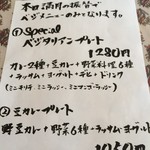 本日満月の振替で
ベジメニューのみとなります。
① Special
ベジタリアンプレート
1280円
カレー2種・豆カレー・野菜料理6種
+ラッサム・ヨーグルト・デザート・ドリンク
(ミニキリ ミニラッシー、ミニマンゴラッシー)
② 豆カレープレート
野菜カレー・豆カレー+野菜6種+ラッサム・ヨーグルト
1050円